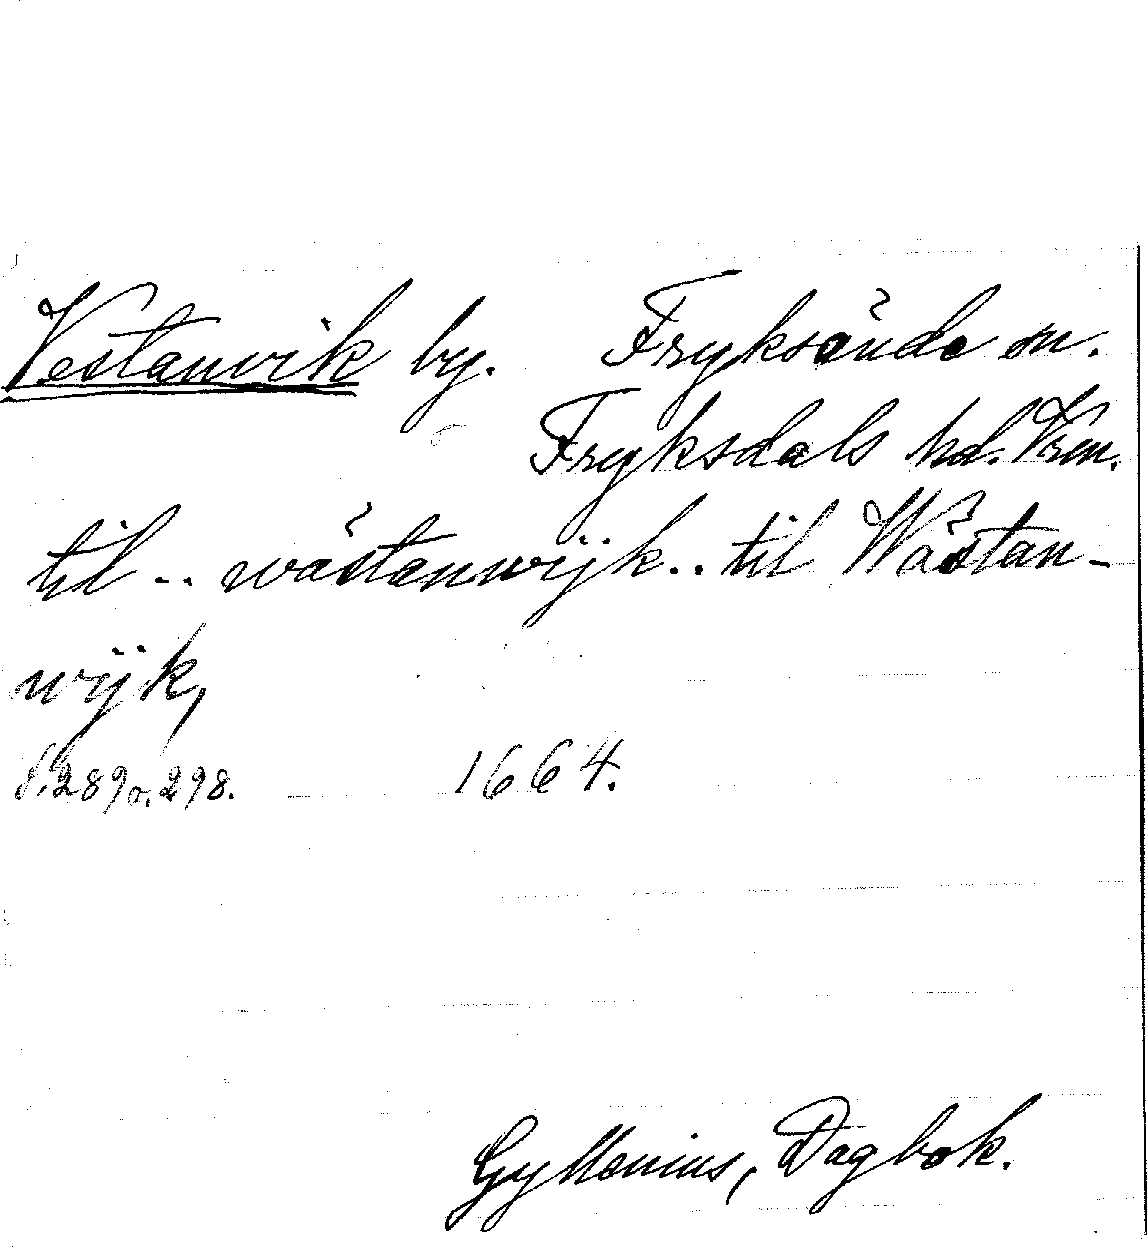 Vestanvik by. Fryksände sn.
Fryksdals hd. Vrm.
til .. wästanwijk .. til Wästan-
wijk,
S. 289 o. 298. 1664.
Gyllenius, Dagbok.